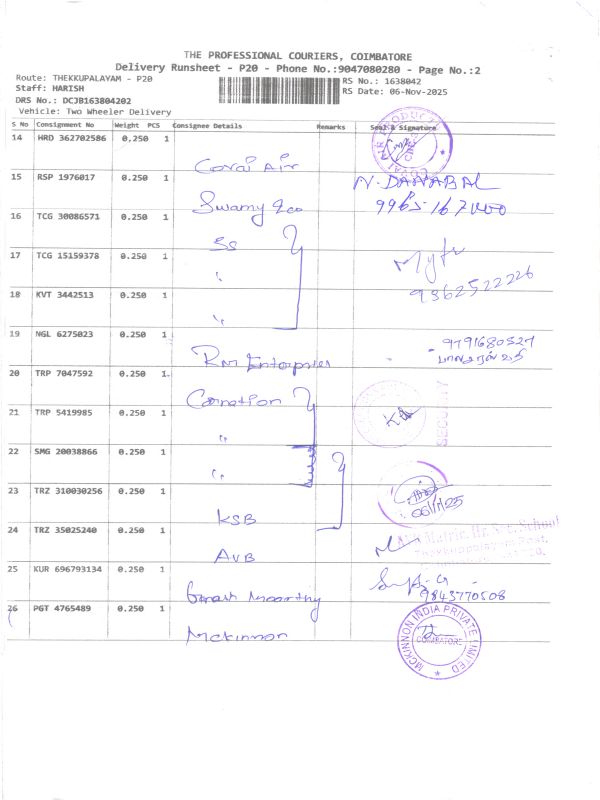 THE PROFESSIONAL COURIERS, COIMBATORE
Delivery Runsheet - P20 - Phone No.:9047080280 - Page No.:2
Route: THEKKUPALAYAM - P20 RS No.: 1638042
Staff: HARISH RS Date: 06-Nov-2025
DRS No.: DCJB163804202
Vehicle: Two Wheeler Delivery
S No Consignment No Weight PCS Consignee Details Remarks Seal & Signature
14 HRD 362702586 0.250 1
Covai Air
15 RSP 1976017 0.250 1 N. DANABAL
Swamy
16 TCG 30086571 0.250 1
SS
17 TCG 15159378 0.250 1
"
9362522226
18 KVT 3442513 0.250 1
"
19 NGL 6275023 0.250 1 9791680527
RM Enterprises
20 TRP 7047592 0.250 1
Carnation
21 TRP 5419985 0.250 1 SECURITY
"
22 SMG 20038866 0.250 1
"
23 TRZ 310030256 0.250 1
KSB
24 TRZ 35025240 0.250 1 Matric. Hr. Sec. School
AVB
25 KUR 696793134 0.250 1
9843770508
Ganesh Moorthy
26 PGT 4765489 0.250 1
Mckinnon
MCKINNON INDIA PRIVATE LIMITED
COIMBATORE